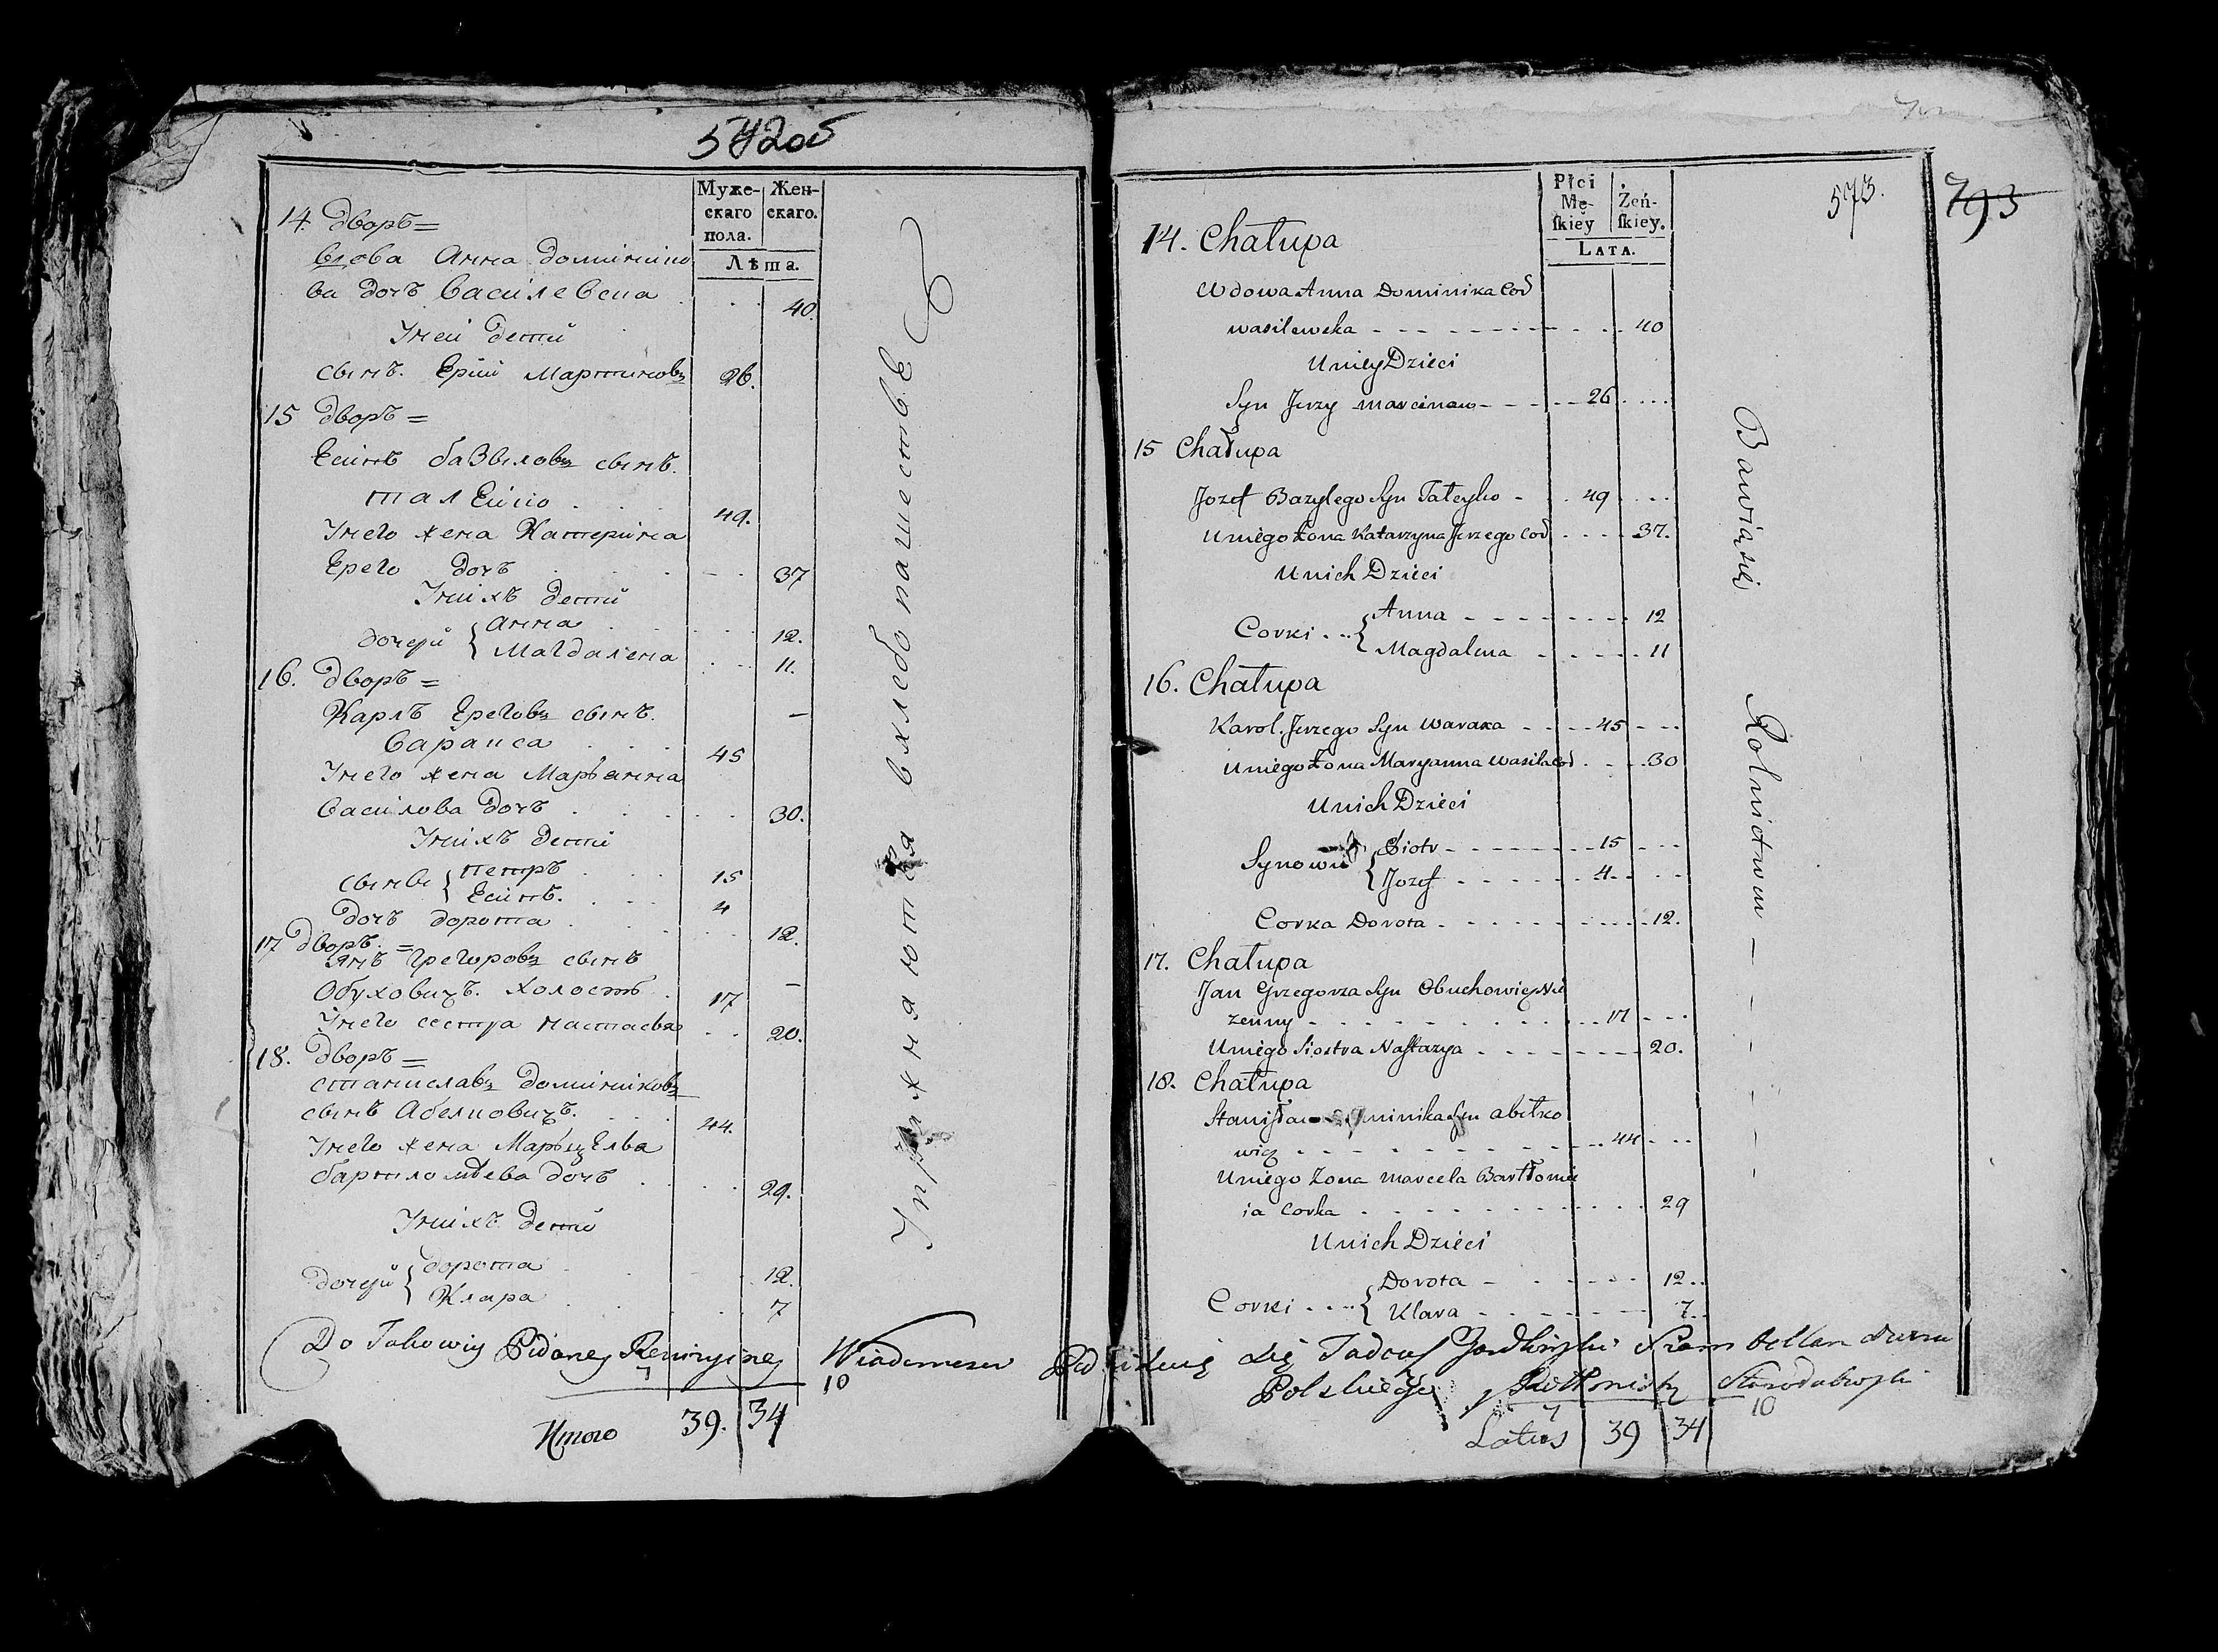 572об
Муже- Жен-
скаго скаго.
пола.
Лѣта.
14. Дворъ=
вдова Анна Доминико
ва дочъ Василевска . . . 40.
Унеи дети
сынъ. Ерiи Мартиновъ 26.
15 Дворъ=
Есипъ базыловъ сынъ.
талеико . . . 49.
Унего жена Катерина
Ерего дочъ . . . 37
Унихъ дети
дочери { Анна . . . 12.
Магдалена . . . 11.
16. Дворъ=
Карлъ Ереговъ сынъ. —
Варакса . . . 45
Унего жена Марьянна
Василова дочъ . . . 30.
Унихъ дети
сынве { петръ . . . 15
Есипъ. . . . 4
Дочъ дорота . . . 12.
17 Дворъ.=
Янъ Грегоровъ сынъ
Обуховичъ. холостъ . 17 —
Унего сестра настасея . . 20.
18. Дворъ=
станиславъ доминиковъ
сынъ Абелковичъ. . . . 44.
Унего жена Марьцелва
бартломѣева дочъ . . . 29.
Унихъ дети
дочери { дорота . . . 12.
Клара . . . 7
Упражняются вхлебопашестве
573.
793
Płci
Mę- Żeń-
ſkiey ſkiey.
LATA.
14. Chałupa
Wdowa Anna Dominika Cod
wasilewska - - - - - 40
Uniey Dzieci
Syn Jerzy marcinow - - - - 26 . . . .
15 Chałupa
Jozef Bazylego Syn Taleyko - . 49 . . . .
Uniego żona Katarzyna Jerzego Cod . . . . 37.
Unich Dzieci
Corki . . . { Anna - - - - - 12
Magdalena - - - - 11
16. Chałupa
Karol. Jerzego Syn Waraxa - - - - 45 - - -
Uniego żona Maryanna Wasila Cod . . . . 30
Unich Dzieci
Synowie { Piotr - - - - - 15 - - -
Jozef - - - - - 4 - - - -
Corka Dorota - - - - - 12.
17. Chałupa
Jan Grzegorza Syn Obuchowicz Nie
zenny - - - - - 17 - - -
Uniego Siostra Nastazya - - - - - 20.
18. Chałupa
Stanisław Dominika Syn abełko
wicz - - - - - 44 - - -
Uniego żona marcela Bartłomie
ia Corka . . . . . 29
Unich Dzieci
Corki . . . . { Dorota - - - - 12 . .
Klara - - - - 7 . .
Bawią się Rolnictwem —
Do Takowey Rewizyiney Tadeusz
7 10 Polskiego
Итого 39. 34
7 10
Latus 39 34